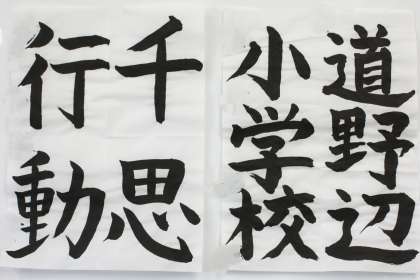 道野辺
小学校
千思
行動